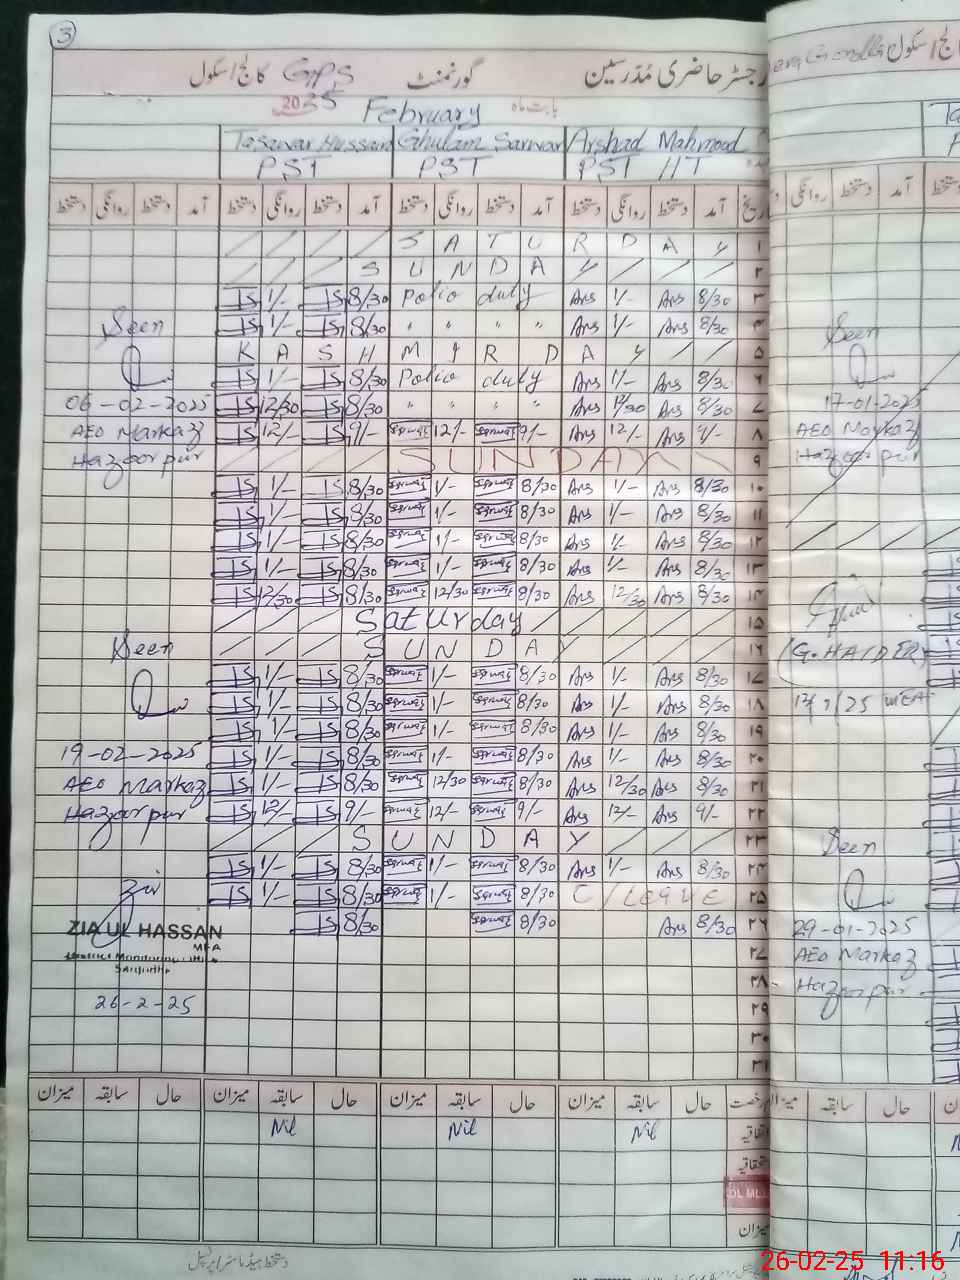 3
رجسٹر حاضری مدرسین گورنمنٹ GPS کالج/اسکول
بابت ماہ February 2025
Tasawar Hussain Ghulam Sarwar Arshad Mahmood
PST PST PST HT
تاریخ آمد دستخط روانگی دستخط آمد دستخط روانگی دستخط آمد دستخط روانگی دستخط آمد دستخط روانگی دستخط
SATURDAY ۱
SUNDAY ۲
1/- 8/30 Polio duty Ars 1/- Ars 8/30 ۳
Seen 1/- 8/30 " " " " Ars 1/- Ars 8/30 ۴
KASHMIR DAY ۵
1/- 8/30 Polio duty Ars 1/- Ars 8/30 ۶
06-02-2025 12/30 8/30 " " " " Ars 12/30 Ars 8/30 ۷
AEO Markaz 12/- 9/- 12/- 9/- Ars 12/- Ars 9/- ۸
Hazoorpur SUNDAY ۹
1/- 8/30 1/- 8/30 Ars 1/- Ars 8/30 ۱۰
1/- 8/30 1/- 8/30 Ars 1/- Ars 8/30 ۱۱
1/- 8/30 1/- 8/30 Ars 1/- Ars 8/30 ۱۲
1/- 8/30 1/- 8/30 Ars 1/- Ars 8/30 ۱۳
12/30 8/30 12/30 8/30 Ars 12/30 Ars 8/30 ۱۴
Saturday ۱۵
Seen SUNDAY ۱۶
1/- 8/30 1/- 8/30 Ars 1/- Ars 8/30 ۱۷
1/- 8/30 1/- 8/30 Ars 1/- Ars 8/30 ۱۸
1/- 8/30 1/- 8/30 Ars 1/- Ars 8/30 ۱۹
19-02-2025 1/- 8/30 1/- 8/30 Ars 1/- Ars 8/30 ۲۰
AEO Markaz 1/- 8/30 12/30 8/30 Ars 12/30 Ars 8/30 ۲۱
Hazoorpur 12/- 9/- 12/- 9/- Ars 12/- Ars 9/- ۲۲
SUNDAY ۲۳
1/- 8/30 1/- 8/30 Ars 1/- Ars 8/30 ۲۴
1/- 8/30 1/- 8/30 C/Leave ۲۵
ZIA UL HASSAN 8/30 8/30 Ars 8/30 ۲۶
MEA
۲۷
Sargodha ۲۸
26-2-25 ۲۹
۳۰
۳۱
رخصت حال سابقہ میزان حال سابقہ میزان حال سابقہ میزان حال سابقہ میزان
اتفاقیہ Nil Nil Nil
میزان
دستخط ہیڈ ماسٹر/پرنسپل
کالج/اسکول
آمد دستخط روانگی
Seen
17-01-2025
AEO Markaz
Hazoorpur
(G. HAIDER)
MEA
Seen
29-01-2025
AEO Markaz
Hazoorpur
حال سابقہ میزان
26-02-25 11:16